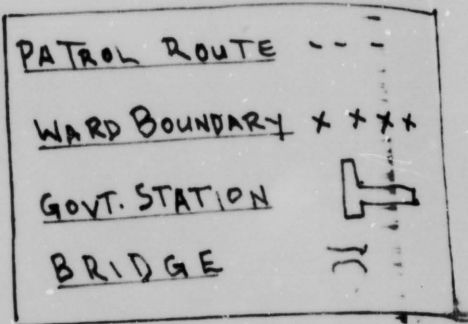 PATROL ROUTE
WARD BOUNDARY
GOVT. STATION
BRIDGE